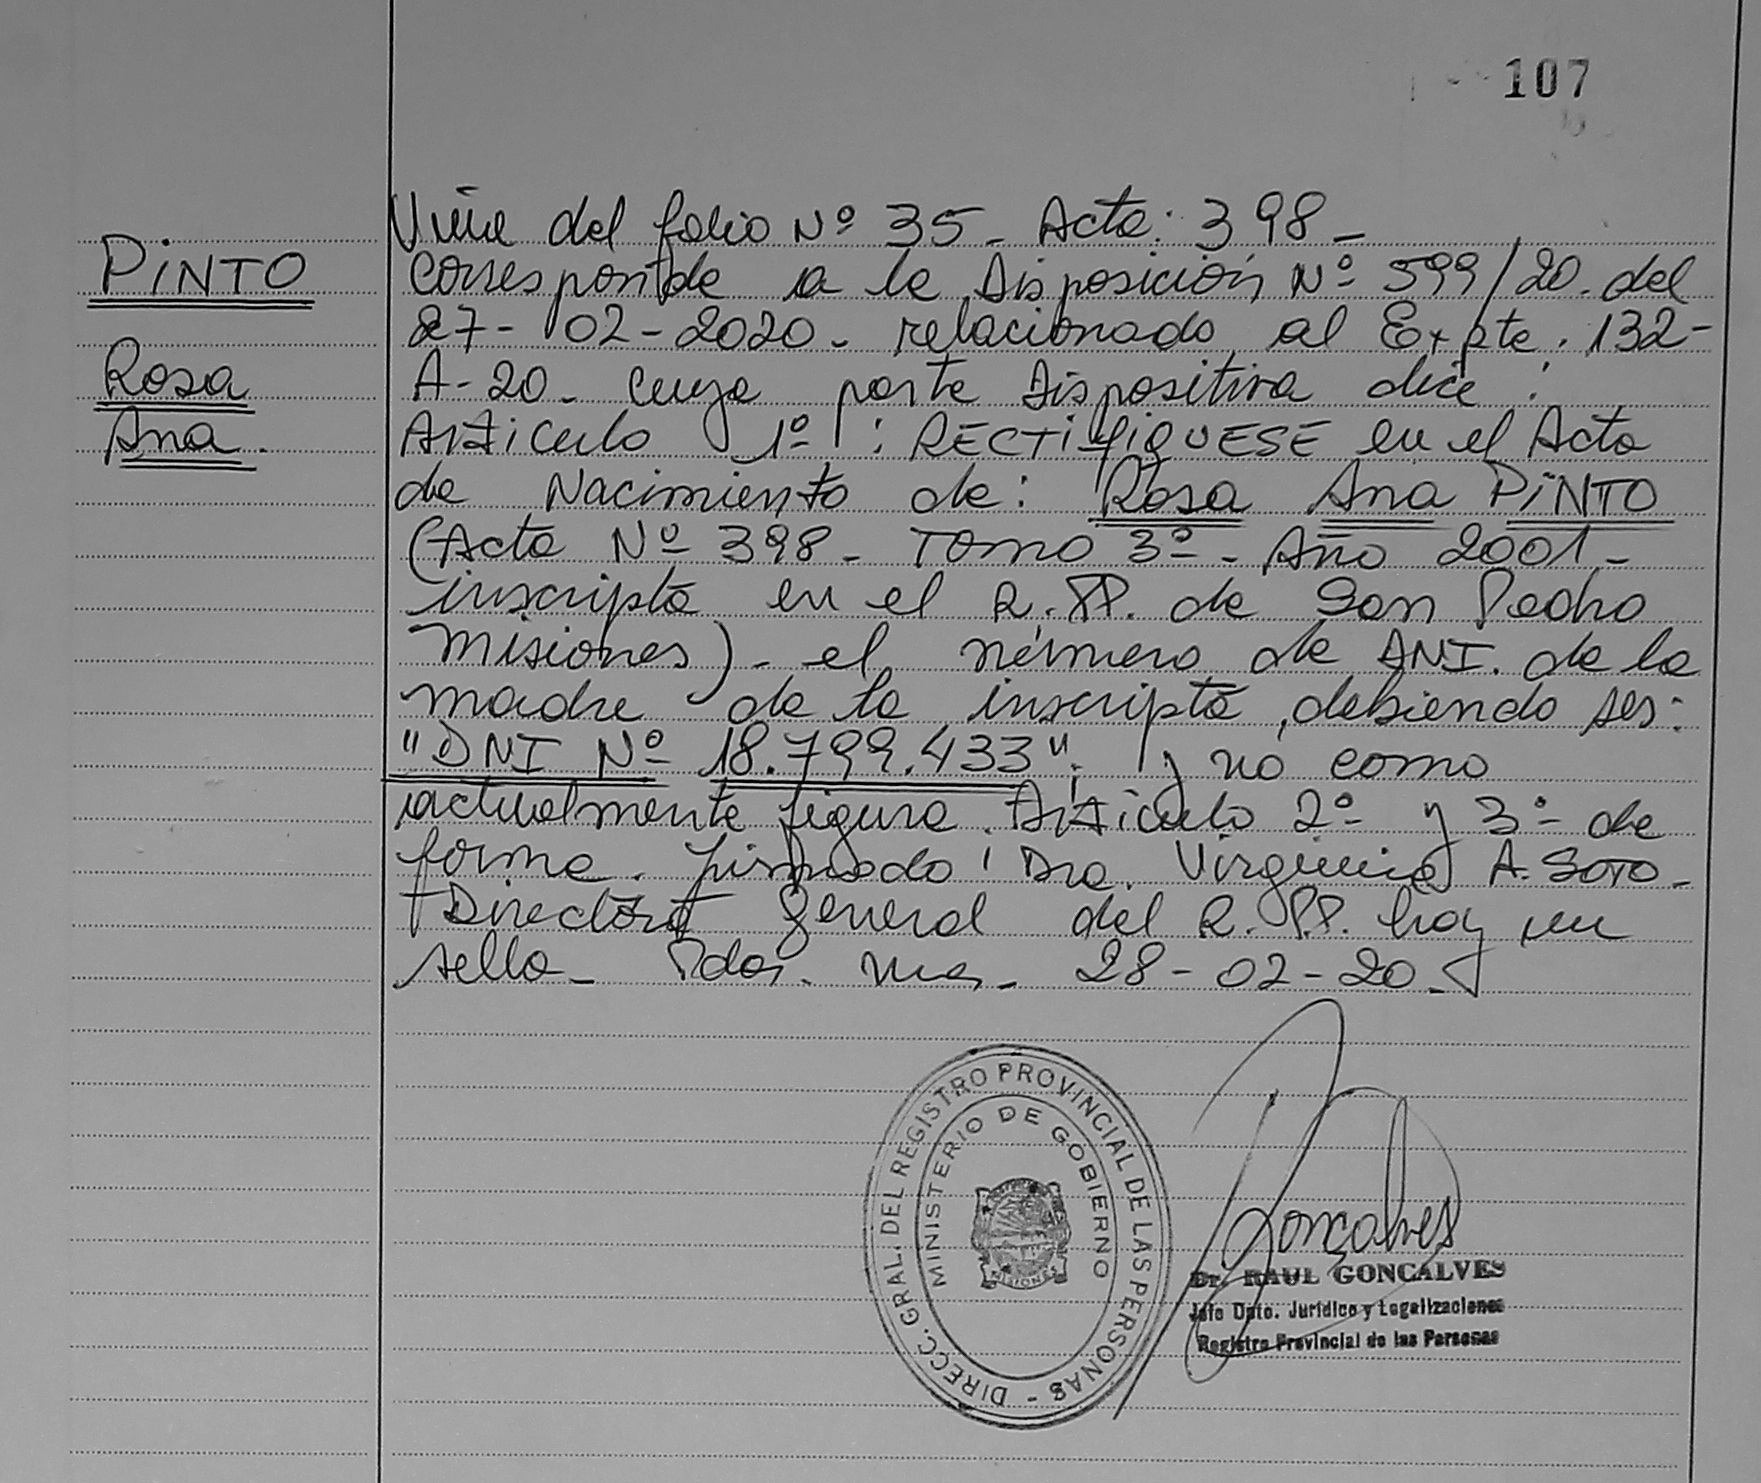 107
PINTO
Rosa
Ana.
Viene del folio Nº 35 - Acta: 398 -
Corresponde a la Disposición Nº 599/20. del
27-02-2020 - relacionado al Expte. 132-
A-20 - cuya parte dispositiva dice:
Artículo 1º: RECTIFIQUESE en el Acta
de Nacimiento de: Rosa Ana PINTO
(Acta Nº 398 - Tomo 3º - Año 2001 -
inscripta en el R.PP. de San Pedro
Misiones) - el número de DNI. de la
madre de la inscripta, debiendo ser:
"DNI Nº 18.799.433". y no como
actualmente figura. Artículo 2º y 3º de
forma. Firmado: Dra. Virginia A. SOTO -
Directora General del R.PP. hay un
sello - Pdas. Mnes. 28-02-20.
DIRECC. GRAL. DEL REGISTRO PROVINCIAL DE LAS PERSONAS -
MINISTERIO DE GOBIERNO
MISIONES
Gonçalves
Dr. RAUL GONCALVES
Jefe Dpto. Jurídico y Legalizaciones
Registro Provincial de las Personas